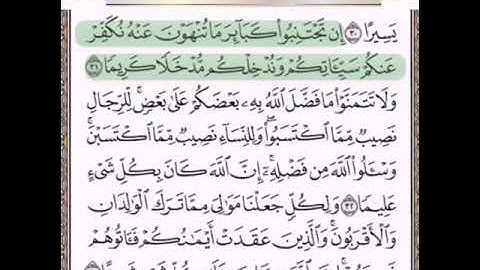 يَسِيرًا ٣٠ إِن تَجْتَنِبُوا۟ كَبَآئِرَ مَا تُنْهَوْنَ عَنْهُ نُكَفِّرْ
عَنكُمْ سَيِّـَٔاتِكُمْ وَنُدْخِلْكُم مُّدْخَلًا كَرِيمًا ٣١
وَلَا تَتَمَنَّوْا۟ مَا فَضَّلَ ٱللَّهُ بِهِۦ بَعْضَكُمْ عَلَىٰ بَعْضٍ ۚ لِّلرِّجَالِ
نَصِيبٌ مِّمَّا ٱكْتَسَبُوا۟ ۖ وَلِلنِّسَآءِ نَصِيبٌ مِّمَّا ٱكْتَسَبْنَ ۚ
وَسْـَٔلُوا۟ ٱللَّهَ مِن فَضْلِهِۦٓ ۗ إِنَّ ٱللَّهَ كَانَ بِكُلِّ شَىْءٍ
عَلِيمًا ٣٢ وَلِكُلٍّ جَعَلْنَا مَوَٰلِىَ مِمَّا تَرَكَ ٱلْوَٰلِدَانِ
وَٱلْأَقْرَبُونَ ۚ وَٱلَّذِينَ عَقَدَتْ أَيْمَـٰنُكُمْ فَـَٔاتُوهُمْ